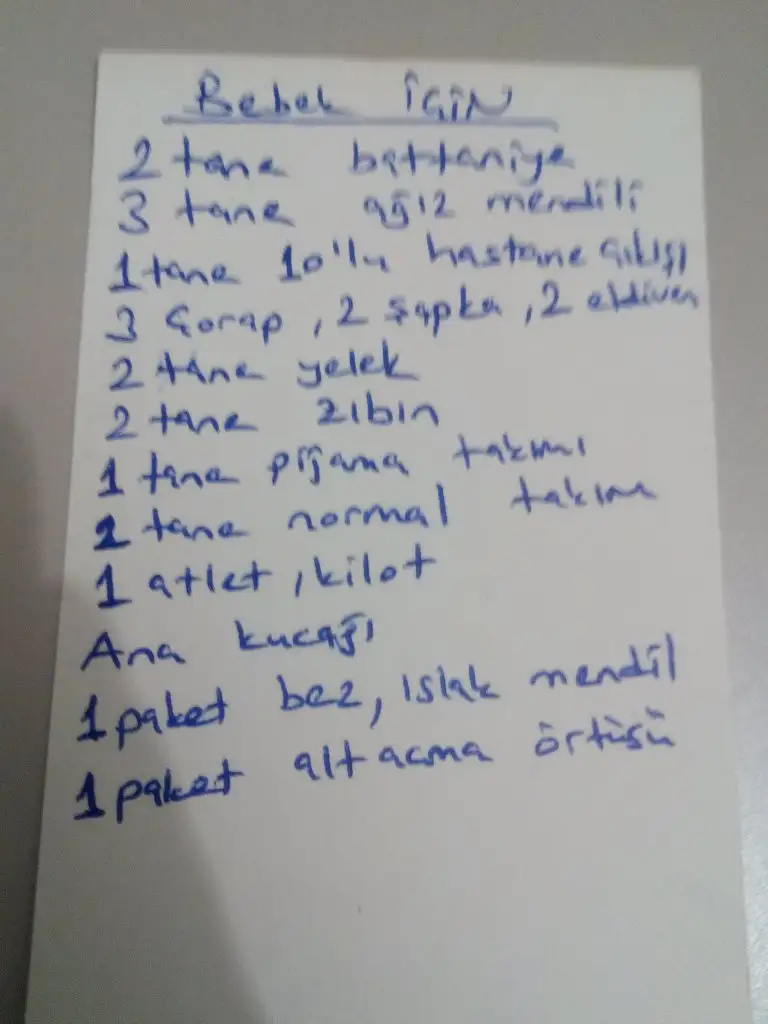 Bebek İÇİN
2 tane battaniye
3 tane ağız mendili
1 tane 10'lu hastane çıkışı
3 Çorap, 2 şapka, 2 eldiven
2 tane yelek
2 tane zıbın
1 tane pijama takımı
1 tane normal takım
1 atlet, kilot
Ana kucağı
1 paket bez, ıslak mendil
1 paket alt acma örtüsü